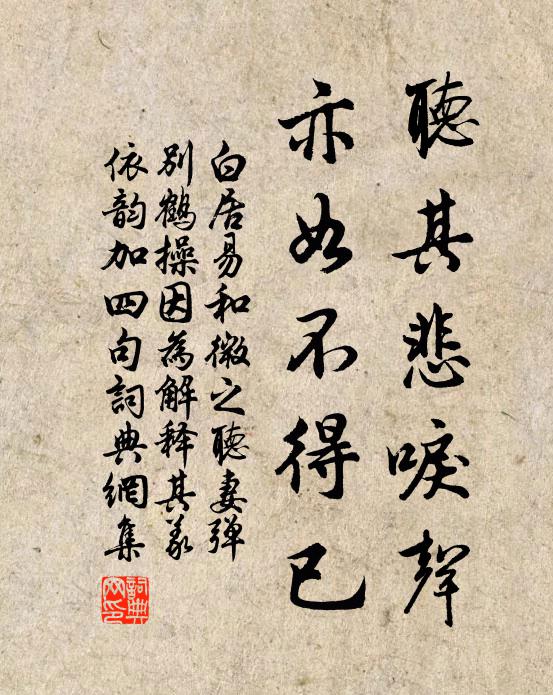 聽其悲唳聲
亦如不得已
白居易和微之聽妻弹
别鶴操因為解释其義
依韵加四句詞典網集
詞典
网印